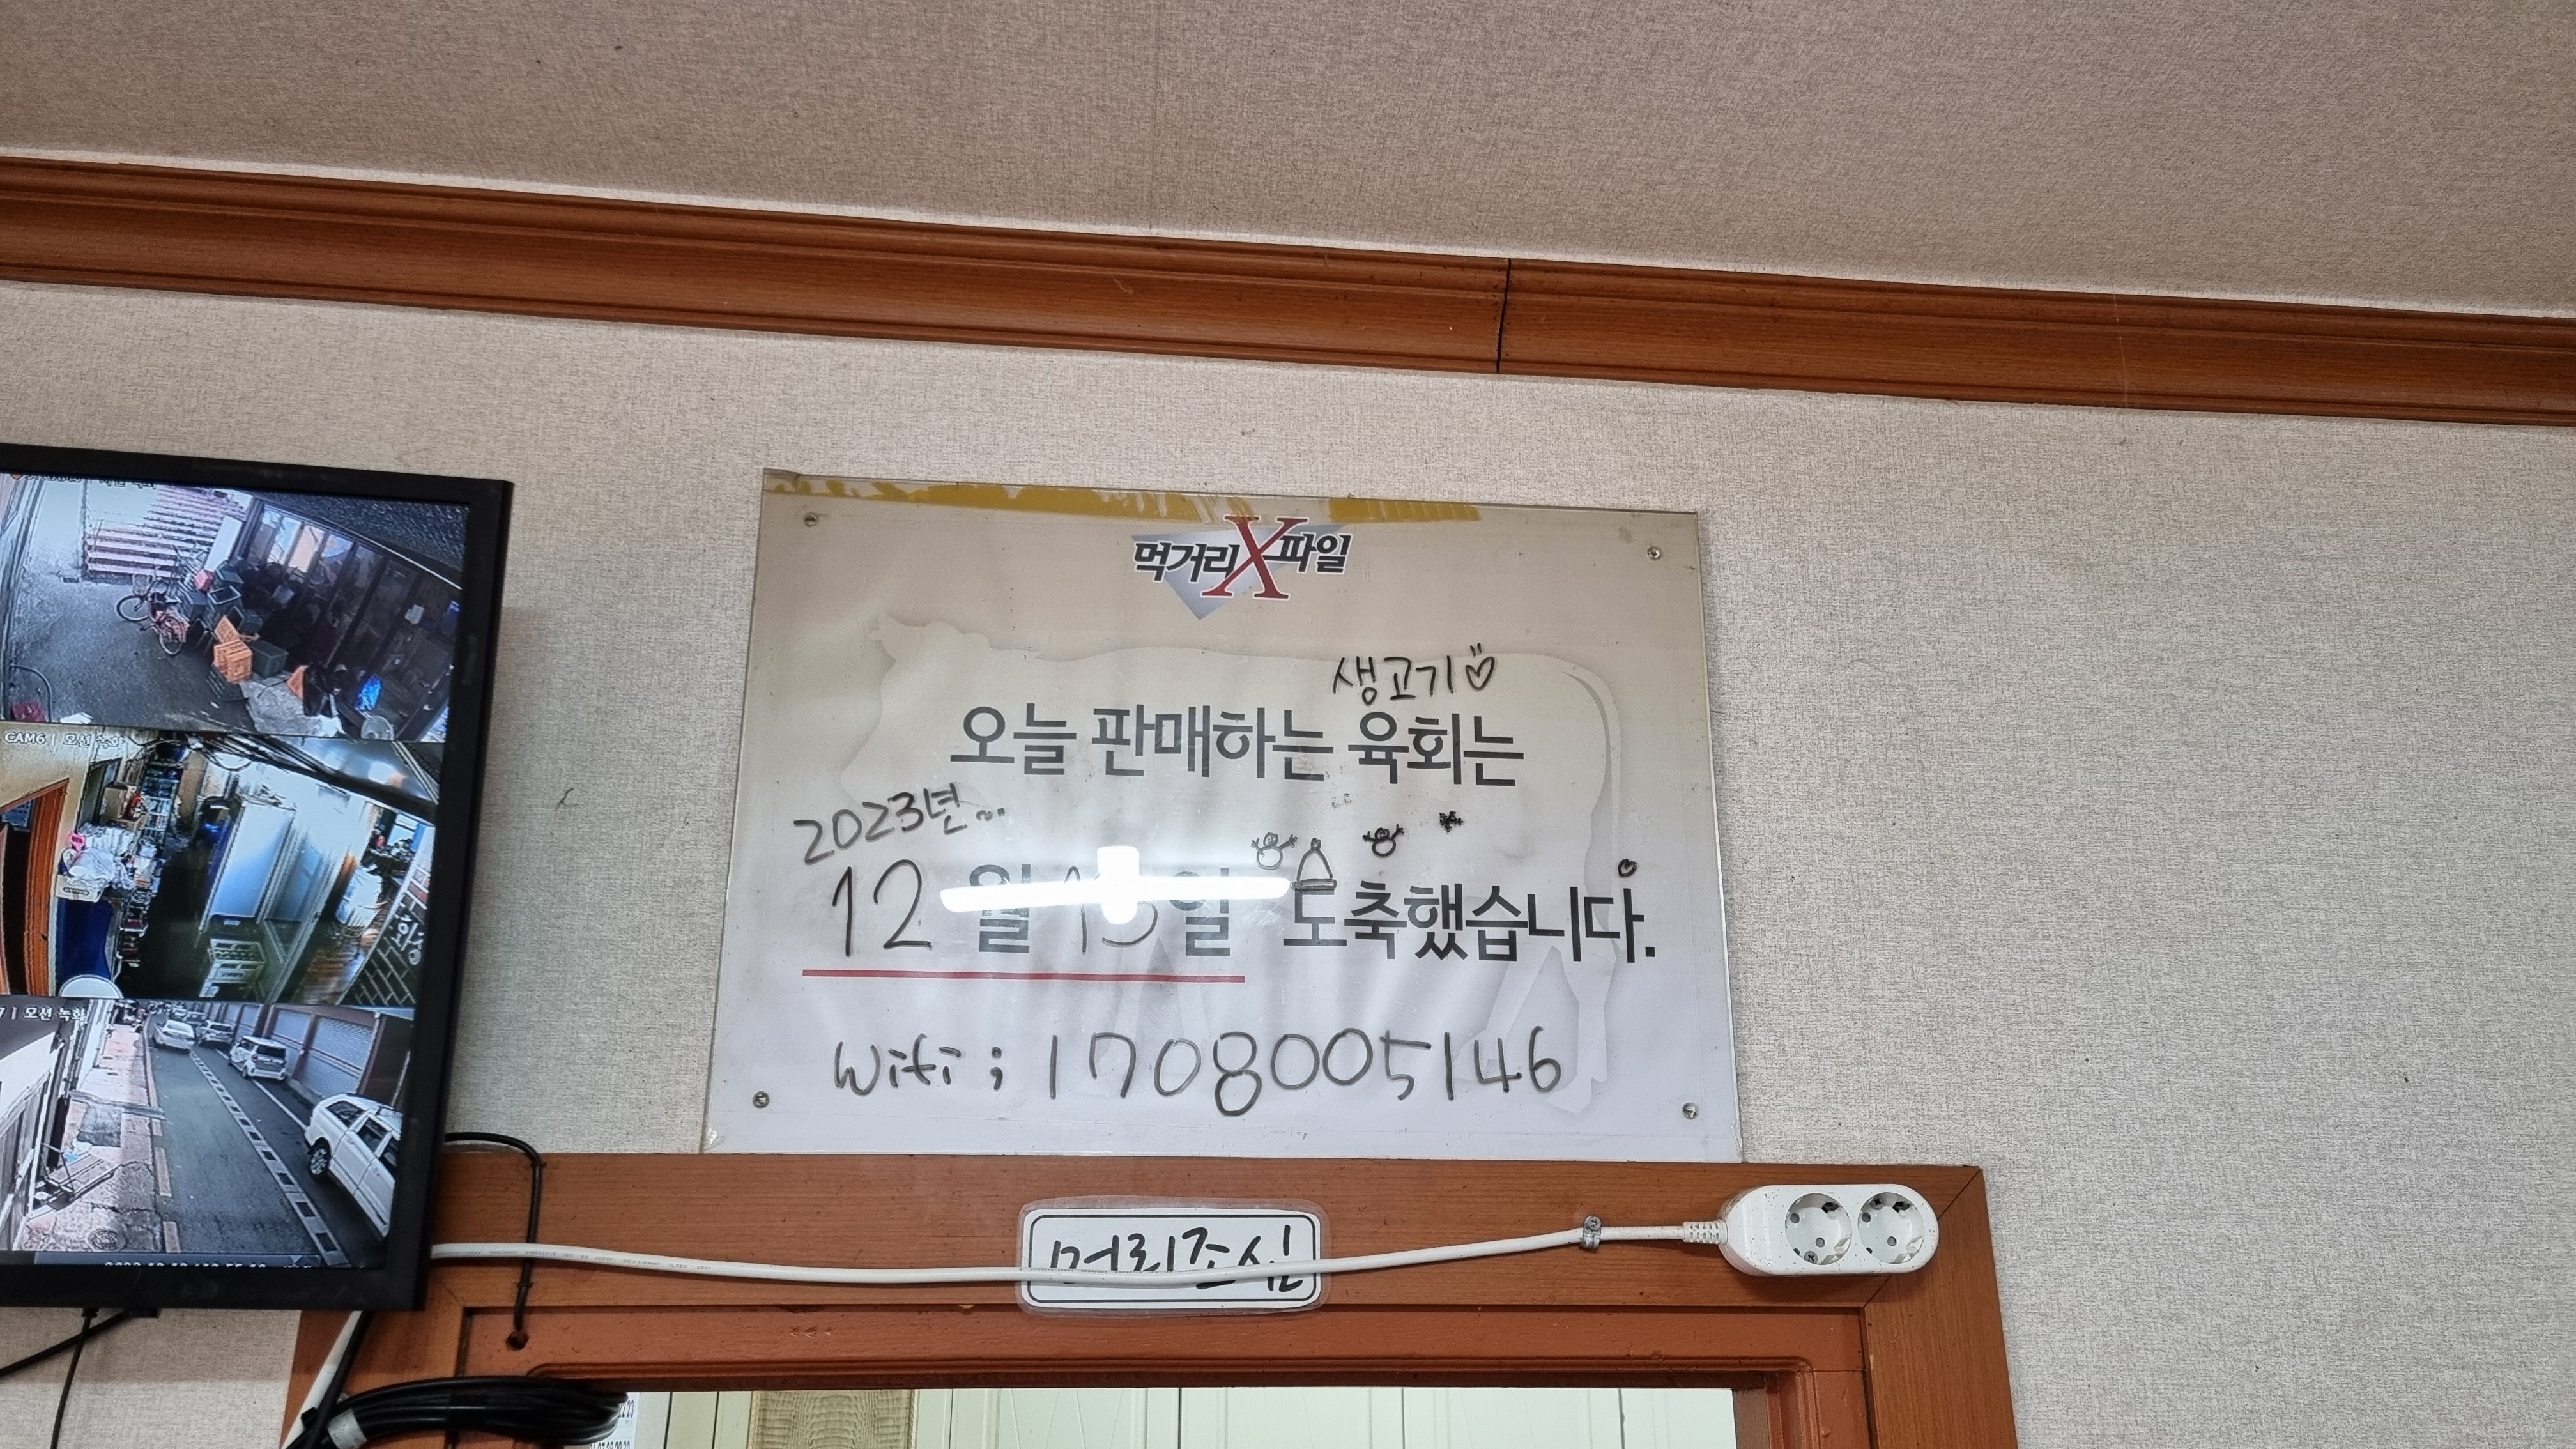 먹거리X파일
생고기♡
오늘 판매하는 육회는
2023년...
12월 13일 도축했습니다.
Wifi ; 1708005146
머리조심
CAM6 | 모션 녹화
7 | 모션 녹화